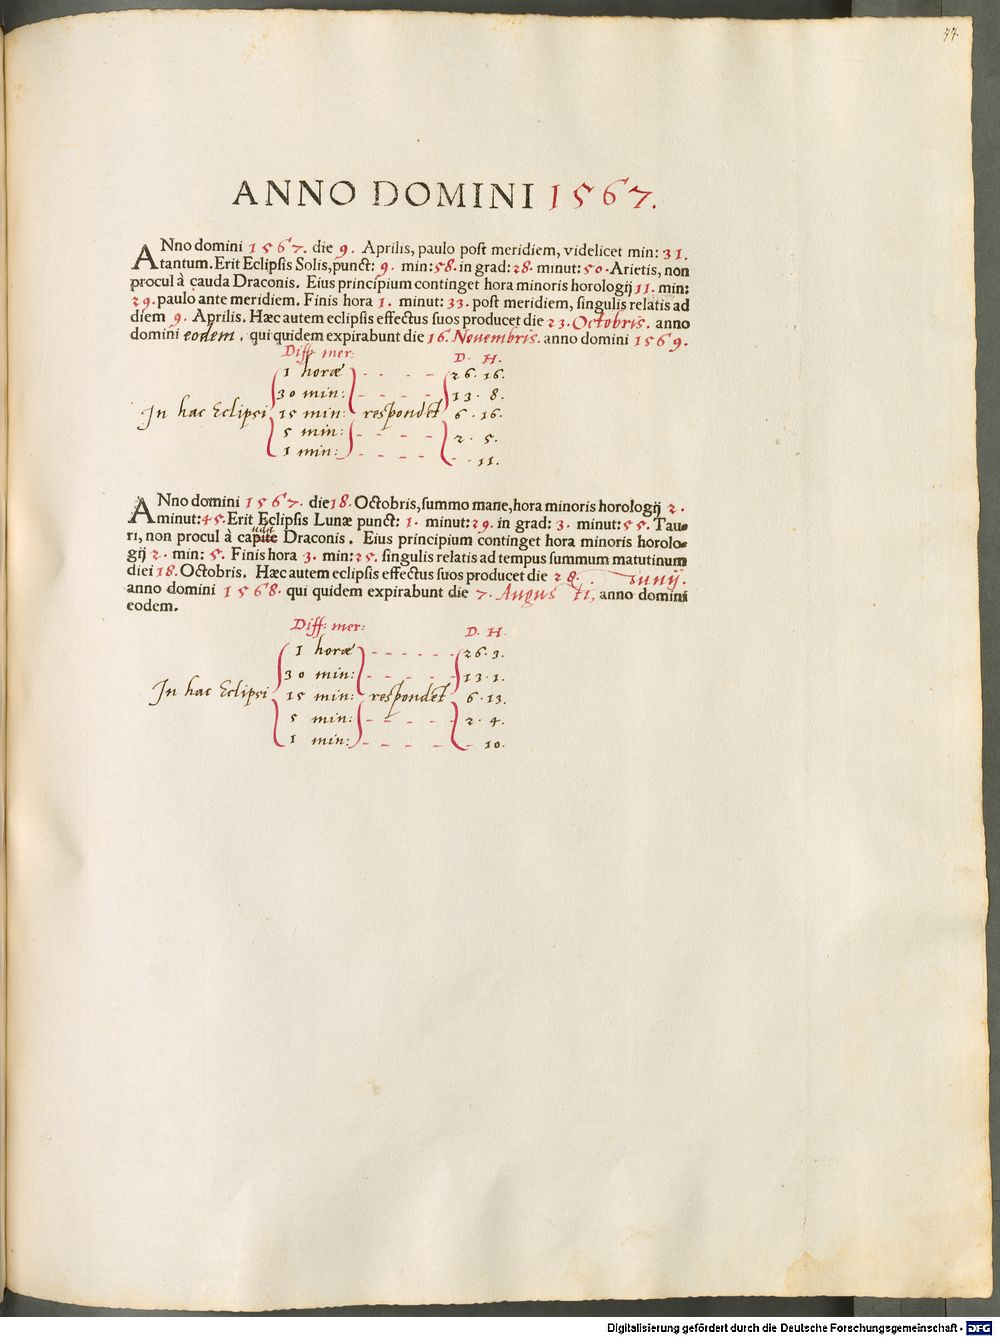 77.
ANNO DOMINI 1567.
ANno domini 1567. die 9. Aprilis, paulo post meridiem, videlicet min: 31.
tantum. Erit Eclipsis Solis, punct: 9. min: 58. in grad: 28. minut: 50. Arietis, non
procul à cauda Draconis. Eius principium continget hora minoris horologij 11. min:
29. paulo ante meridiem. Finis hora 1. minut: 33. post meridiem, singulis relatis ad
diem 9. Aprilis. Hæc autem eclipsis effectus suos producet die 23. Octobris. anno
domini eodem. qui quidem expirabunt die 16. Novembris. anno domini 1569.
Diff: mer: D. H.
1 horæ - - - - 26. 16.
30 min: - - - - 13. 8.
In hac Eclipsi 15 min: respondet 6. 16.
5 min: - - - - 2. 5.
1 min: - - - - - - 11.
ANno domini 1567. die 18. Octobris, summo mane, hora minoris horologij 2.
minut: 45. Erit Eclipsis Lunæ punct: 1. minut: 29. in grad: 3. minut: 55. Tau-
ri, non procul à capite Draconis. Eius principium continget hora minoris horolo-
gij 2. min: 5. Finis hora 3. min: 25. singulis relatis ad tempus summum matutinum
diei 18. Octobris. Hæc autem eclipsis effectus suos producet die 28. Junij.
anno domini 1568. qui quidem expirabunt die 7. Augusti, anno domini
eodem.
Diff: mer: D. H.
1 horæ - - - - - - 26. 3.
30 min: - - - - - 13. 1.
In hac Eclipsi 15 min: respondet 6. 13.
5 min: - - - - 2. 4.
1 min: - - - - - 10.
Digitalisierung gefördert durch die Deutsche Forschungsgemeinschaft - DFG